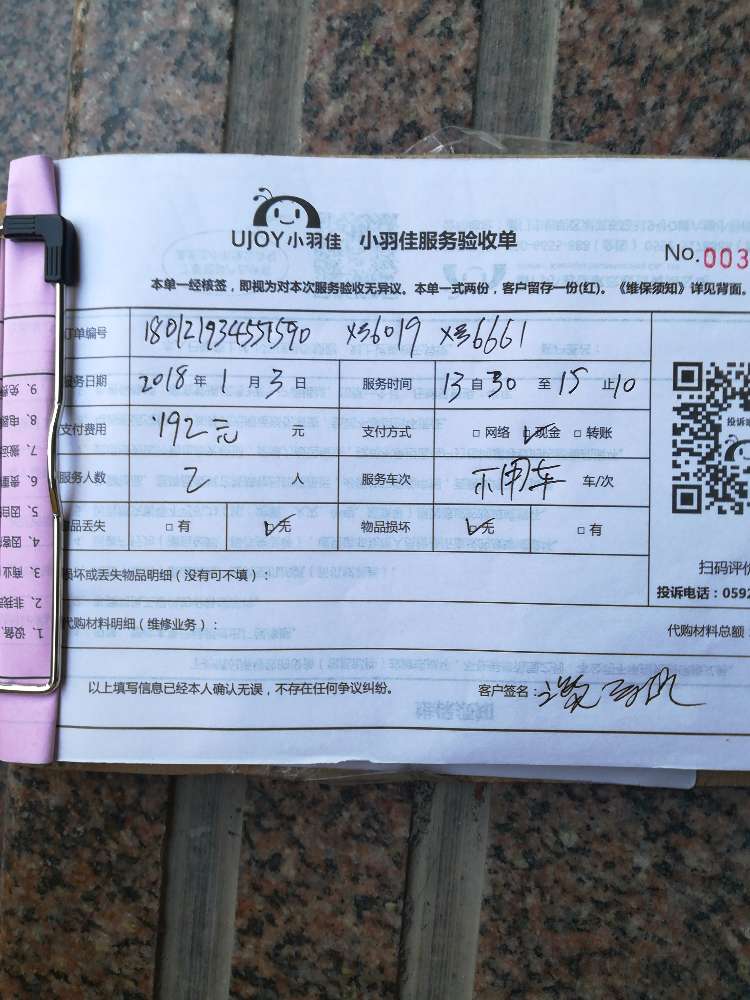 UJOY小羽佳 小羽佳服务验收单
No.003
本单一经核签，即视为对本次服务验收无异议。本单一式两份，客户留存一份(红)。《维保须知》详见背面。
订单编号 180121934551590 X号6019 X号6661
服务日期 2018年1月3日 服务时间 13自30至15止10
支付费用 192元 元 支付方式 □网络 ☑现金 □转账
服务人数 2人 服务车次 不用车 车/次
物品丢失 □有 ☑无 物品损坏 ☑无 □有
损坏或丢失物品明细（没有可不填）：
扫码评价
投诉电话：0592
代购材料明细（维修业务）：
代购材料总额
以上填写信息已经本人确认无误，不存在任何争议纠纷。 客户签名：